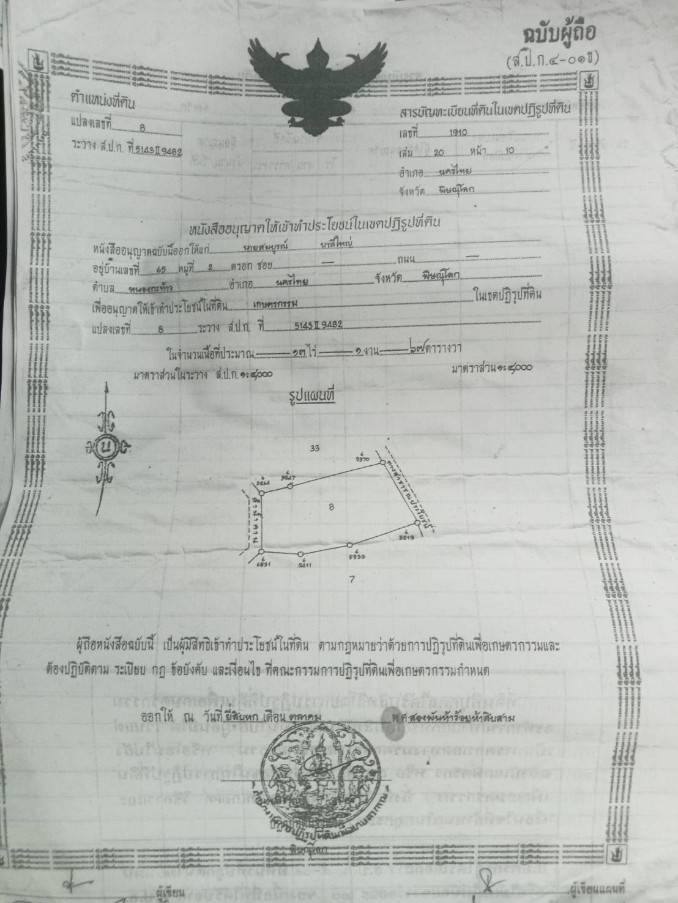 ฉบับผู้ถือ
(ส.ป.ก.๔-๐๑ข)
ตำแหน่งที่ดิน
แปลงเลขที่ 8
ระวาง ส.ป.ก. ที่ 5143 II 9482
สารบัญทะเบียนที่ดินในเขตปฏิรูปที่ดิน
เลขที่ 1910
เล่ม 20 หน้า 10
อำเภอ นครไทย
จังหวัด พิษณุโลก
หนังสืออนุญาตให้เข้าทำประโยชน์ในเขตปฏิรูปที่ดิน
หนังสืออนุญาตฉบับนี้ออกให้แก่ นายสมบูรณ์
อยู่บ้านเลขที่ 65 หมู่ที่ 2 ตรอก ซอย — ถนน —
ตำบล หนองกะท้าว อำเภอ นครไทย จังหวัด พิษณุโลก
เพื่ออนุญาตให้เข้าทำประโยชน์ในที่ดิน เกษตรกรรม ในเขตปฏิรูปที่ดิน
แปลงเลขที่ 8 ระวาง ส.ป.ก. ที่ 5143 II 9482
ในจำนวนเนื้อที่ประมาณ ๑๓ ไร่ ๑ งาน ๖๗ ตารางวา
มาตราส่วนในระวาง ส.ป.ก. ๑:๔,๐๐๐ มาตราส่วน ๑:๔,๐๐๐
รูปแผนที่
น
33
8
7
ผู้ถือหนังสือฉบับนี้ เป็นผู้มีสิทธิเข้าทำประโยชน์ในที่ดิน ตามกฎหมายว่าด้วยการปฏิรูปที่ดินเพื่อเกษตรกรรมและ
ต้องปฏิบัติตาม ระเบียบ กฎ ข้อบังคับ และเงื่อนไข ที่คณะกรรมการปฏิรูปที่ดินเพื่อเกษตรกรรมกำหนด
ออกให้ ณ วันที่ ยี่สิบหก เดือน ตุลาคม พ.ศ. สองพันห้าร้อยห้าสิบสาม
พิษณุโลก
ผู้เขียน
ผู้เขียนแผนที่